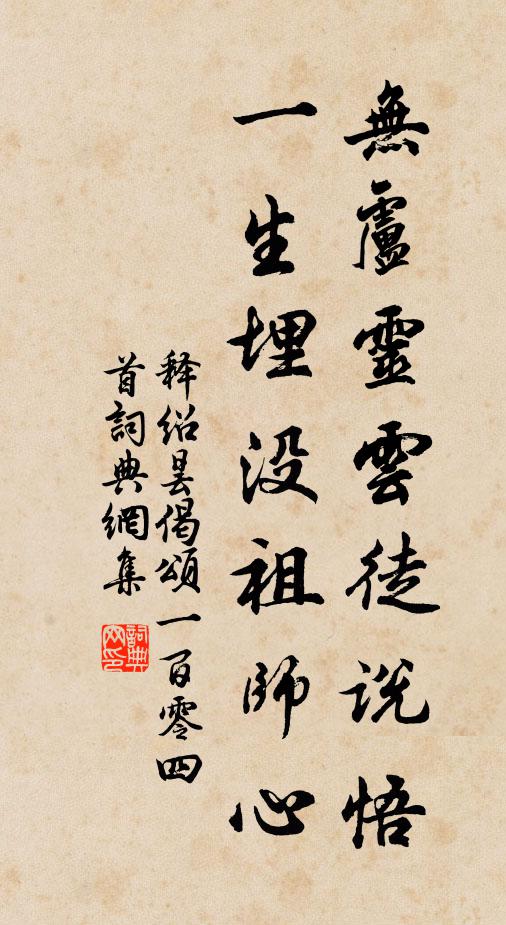 無盧靈雲徒説悟
一生埋没祖師心
释紹曇偈頌一百零四
首詞典網集
詞典
网印